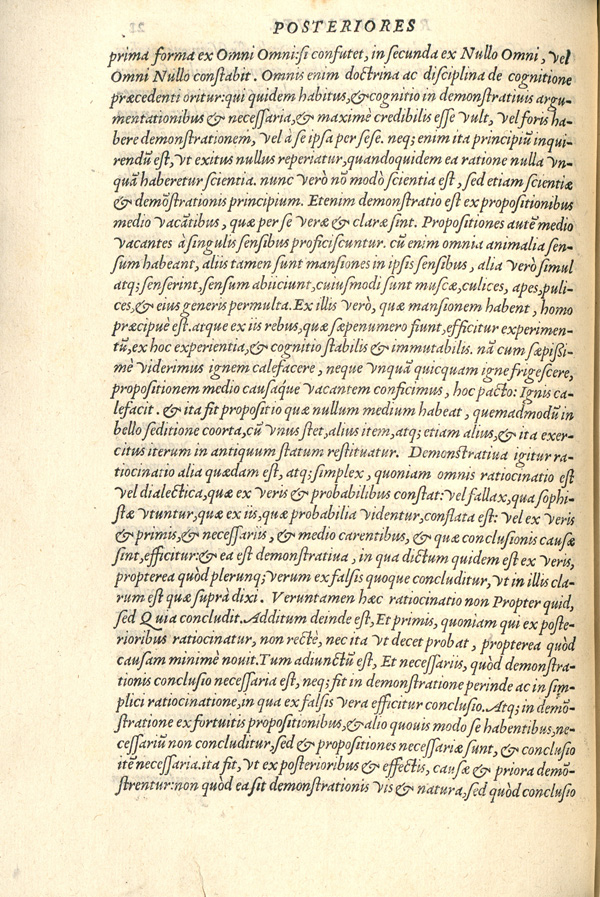 POSTERIORES
prima forma ex Omni Omni:si confutet, in secunda ex Nullo Omni, vel
Omni Nullo constabit. Omnis enim doctrina ac disciplina de cognitione
præcedenti oritur:qui quidem habitus,& cognitio in demonstratiuis argu-
mentationibus & necessaria,& maximè credibilis esse vult, vel foris ha-
bere demonstrationem, vel à se ipsa per sese. neq; enim ita principiũ inqui-
rendũ est, vt exitus nullus reperiatur, quandoquidem ea ratione nulla vn-
quã haberetur scientia. nunc verò nõ modò scientia est, sed etiam scientiæ
& demõstrationis principium. Etenim demonstratio est ex propositionibus
medio vacãtibus, quæ per se veræ & claræ sint. Propositiones autẽ medio
vacantes à singulis sensibus proficiscuntur. cũ enim omnia animalia sen-
sum habeant, aliis tamen sunt mansiones in ipsis sensibus, alia verò simul
atq; senserint, sensum abiiciunt, cuiusmodi sunt muscæ, culices, apes, puli-
ces,& eius generis permulta. Ex illis verò, quæ mansionem habent, homo
præcipuè est. atque ex iis rebus, quæ sæpenumero fiunt, efficitur experimen-
tũ, ex hoc experientia,& cognitio stabilis & immutabilis. nã cum sæpissi-
mè viderimus ignem calefacere, neque vnquã quicquam igne frigescere,
propositionem medio causaq́ue vacantem conficimus, hoc pacto: Ignis ca-
lefacit. & ita fit propositio quæ nullum medium habeat, quemadmodũ in
bello seditione coorta, cũ vnus stet, alius item, atq; etiam alius,& ita exer-
citus iterum in antiquum statum restituatur. Demonstratiua igitur ra-
tiocinatio alia quædam est, atq; simplex, quoniam omnis ratiocinatio est
vel dialectica, quæ ex veris & probabilibus constat: vel fallax, qua sophi-
stæ vtuntur, quæ ex iis, quæ probabilia videntur, conflata est: vel ex veris
& primis,& necessariis, & medio carentibus, & quæ conclusionis causæ
sint, efficitur:& ea est demonstratiua, in qua dictum quidem est ex veris,
propterea quòd plerunq; verum ex falsis quoque concluditur, vt in illis cla-
rum est quæ suprà dixi. Veruntamen hæc ratiocinatio non Propter quid,
sed Quia concludit. Additum deinde est, Et primis, quoniam qui ex poste-
rioribus ratiocinatur, non rectè, nec ita vt decet probat, propterea quòd
causam minimè nouit. Tum adiunctũ est, Et necessariis, quòd demonstra-
tionis conclusio necessaria est, neq; fit in demonstratione perinde ac in sim-
plici ratiocinatione, in qua ex falsis vera efficitur conclusio. Atq; in demõ-
stratione ex fortuitis propositionibus,& alio quouis modo se habentibus, ne-
cessariũ non concluditur, sed & propositiones necessariæ sunt, & conclusio
itẽ necessaria. ita fit, vt ex posterioribus & effectis, causæ & priora demõ-
strentur: non quòd ea sit demonstrationis vis & natura, sed quòd conclusio